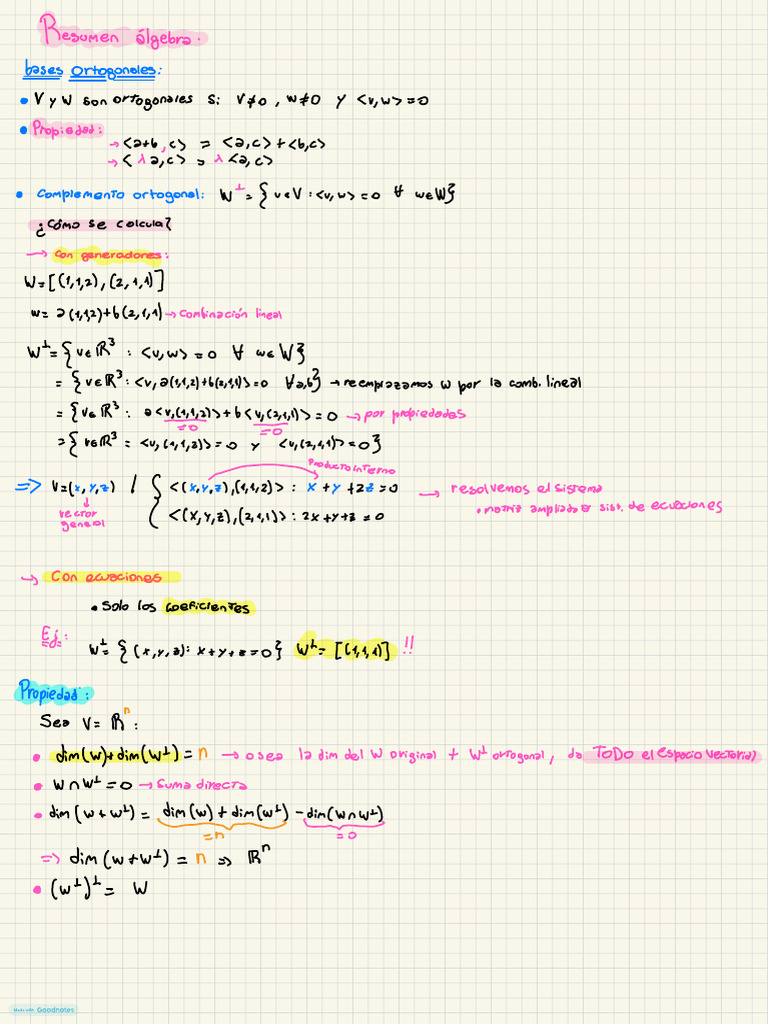 Resumen álgebra.
bases ortogonales:
• V y W son ortogonales si V≠0, w≠0 y <v,w>=0
• Propiedad:
→ <a+b,c> = <a,c>+<b,c>
→ <λa,c> = λ<a,c>
• Complemento ortogonal: W⊥ = {v∈V : <v,w>=0 ∀ w∈W}
¿Cómo se calcula?
→ Con generadores:
W=[(1,1,2),(2,1,1)]
w= a(1,1,2)+b(2,1,1) → Combinación lineal
W⊥ = {v∈ℝ³ : <v,w> = 0 ∀ w∈W}
= {v∈ℝ³ : <v,a(1,1,2)+b(2,1,1)>=0 ∀a,b} → reemplazamos w por la comb. lineal
= {v∈ℝ³ : a<v,(1,1,2)>+b<v,(2,1,1)>=0 → por propiedades
=0 =0
= {v∈ℝ³ = <v,(1,1,2)>=0 y <v,(2,1,1)>=0}
Producto interno
=> V=(x,y,z) / { <(x,y,z),(1,1,2)> : x+y+2z=0 → resolvemos el sistema
vector general
<(x,y,z),(2,1,1)> : 2x+y+z=0
• matriz ampliada o sist. de ecuaciones
→ Con ecuaciones
• Solo los coeficientes
Ej: W⊥ = {(x,y,z): x+y+z=0} W⊥ = [(1,1,1)] !!
Propiedad:
Sea V= ℝⁿ :
• dim(w)+dim(W⊥) = n → o sea la dim del W original + W⊥ ortogonal, da TODO el espacio vectorial
• W∩W⊥ = 0 → Suma directa
• dim(w+w⊥) = dim(w) + dim(w⊥) - dim(w∩w⊥)
=n =0
=> dim(w+w⊥) = n => ℝⁿ
• (w⊥)⊥ = W
Made with Goodnotes